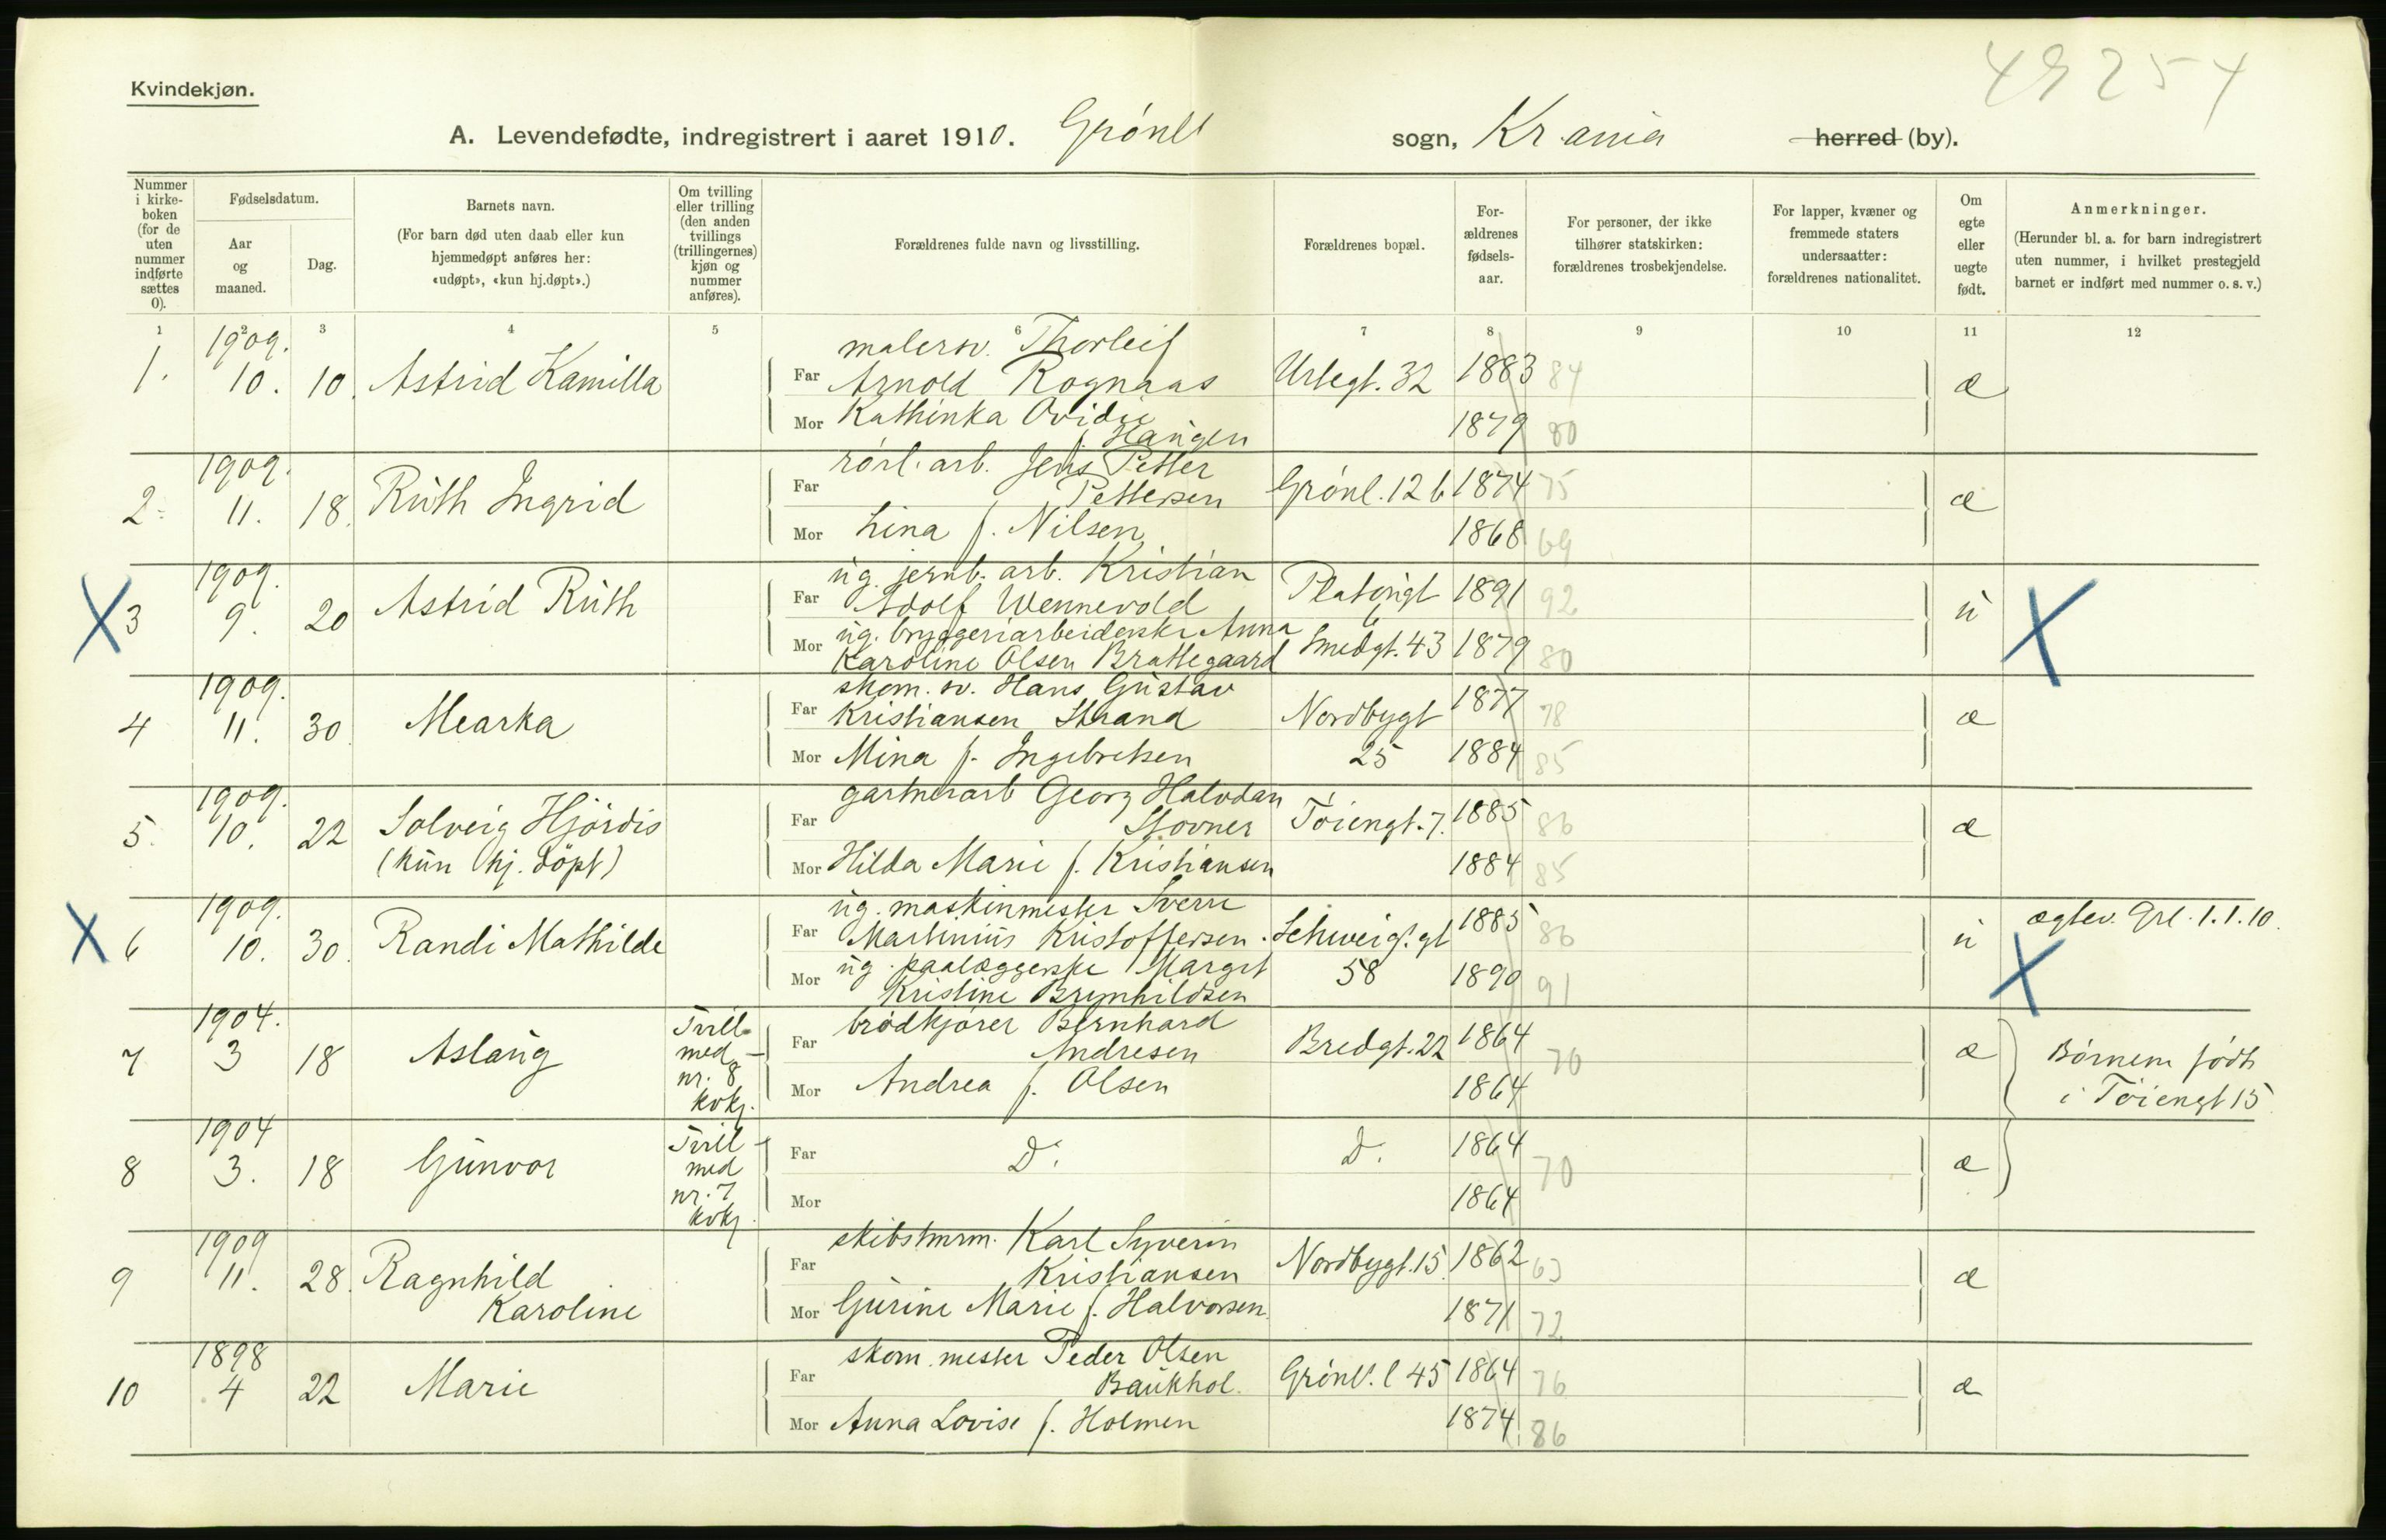 Kvindekjøn.
49254
A. Levendefødte, indregistrert i aaret 1910. Grønl sogn, Kr.ania herred (by).
Nummer i kirkeboken (for de uten nummer indførte sættes 0).
Fødselsdatum.
Aar og maaned.
Dag.
Barnets navn.
(For barn død uten daab eller kun hjemmedøpt anføres her: «udøpt», «kun hj.døpt».)
Om tvilling eller trilling (den anden tvillings (trillingernes) kjøn og nummer anføres).
Forældrenes fulde navn og livsstilling.
Forældrenes bopæl.
Forældrenes fødselsaar.
For personer, der ikke tilhører statskirken: forældrenes trosbekjendelse.
For lapper, kvæner og fremmede staters undersaatter: forældrenes nationalitet.
Om egte eller uegte født.
Anmerkninger.
(Herunder bl. a. for barn indregistrert uten nummer, i hvilket prestegjeld barnet er indført med nummer o. s. v.)
1 2 3 4 5 6 7 8 9 10 11 12
1. 1909. 10. 10. Astrid Kamilla
Far malersv. Thorleif Arnold Rognaas Urtegt. 32 1883 84 æ
Mor Kathinka Ovidie f. Haugen 1879 80
2. 1909. 11. 18. Ruth Ingrid
Far rörl. arb. Jens Petter Pettersen Grönl. 12 b 1874 75 æ
Mor Lina f. Nilsen 1868 69
X 3 1909. 9. 20 Astrid Ruth
Far ug. jernb. arb. Kristian Adolf Wennevold Platougt 6 1891 92 u X
Mor ug. bryggeriarbeiderske Anna Karoline Olsen Brattegaard Smedgt. 43 1879 80
4 1909. 11. 30. Mearka
Far skom. sv. Hans Gustav Kristiansen Strand Nordbygt 25 1877 78 æ
Mor Mina f. Ingebretsen 1884 85
5. 1909. 10. 22 Solveig Hjördis (kun hj. döpt)
Far gartnerarb Georg Halvdan Stovner Töiengt. 7. 1885 86 æ
Mor Hilda Marie f. Kristiansen 1884 85
X 6 1909. 10. 30. Randi Mathilde
Far ug. maskinmester Sverre Martinius Kristoffersen. Schweig. gt 58 1885 86 u ægtev. Grl. 1.1.10. X
Mor ug. paalæggerske Margit Kristine Brynhildsen 1890 91
7 1904. 3 18 Aslaug Tvill. med nr. 8 kvkj.
Far brödkjörer Bernhard Andresen Bredgt. 22 1864 70 æ Börnene födt i Töiengt 15
Mor Andrea f. Olsen 1864
8 1904 3. 18 Gunvor Tvill med nr. 7 kvkj.
Far D. D. 1864 70 æ
Mor 1864
9 1909 11. 28. Ragnhild Karoline
Far skibstmrm. Karl Syverin Kristiansen Nordbygt. 15. 1862 63 æ
Mor Gurine Marie f. Halvorsen. 1871 72
10 1898 4 22 Marie
Far skom. mester Peder Olsen Baukhol. Grönl. l 45 1864 76 æ
Mor Anna Lovise f. Holmen 1874 86